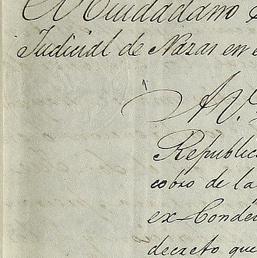 Ciudadano
Judicial de Nazas en
A V.
Republic
cobro de la
ex-Conde
decreto que